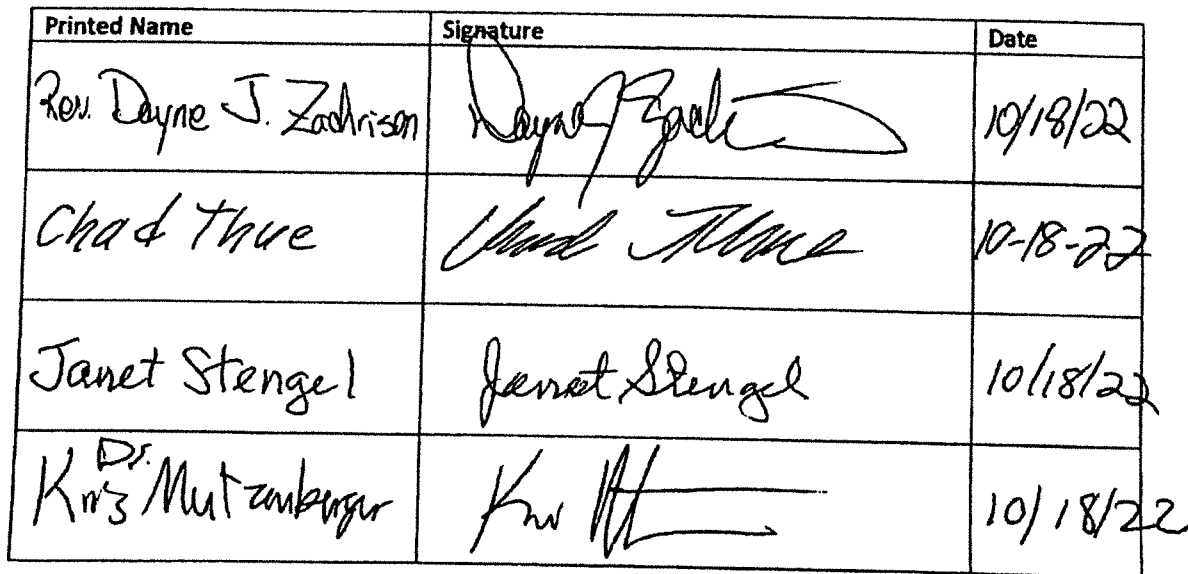 Printed Name Signature Date
Rev. Dayne J. Zachrison Dayne J Zach 10/18/22
Chad Thue Chad Thue 10-18-22
Janet Stengel Janet Stengel 10/18/22
Dr.
Kris Mutzenberger Kris 10/18/22